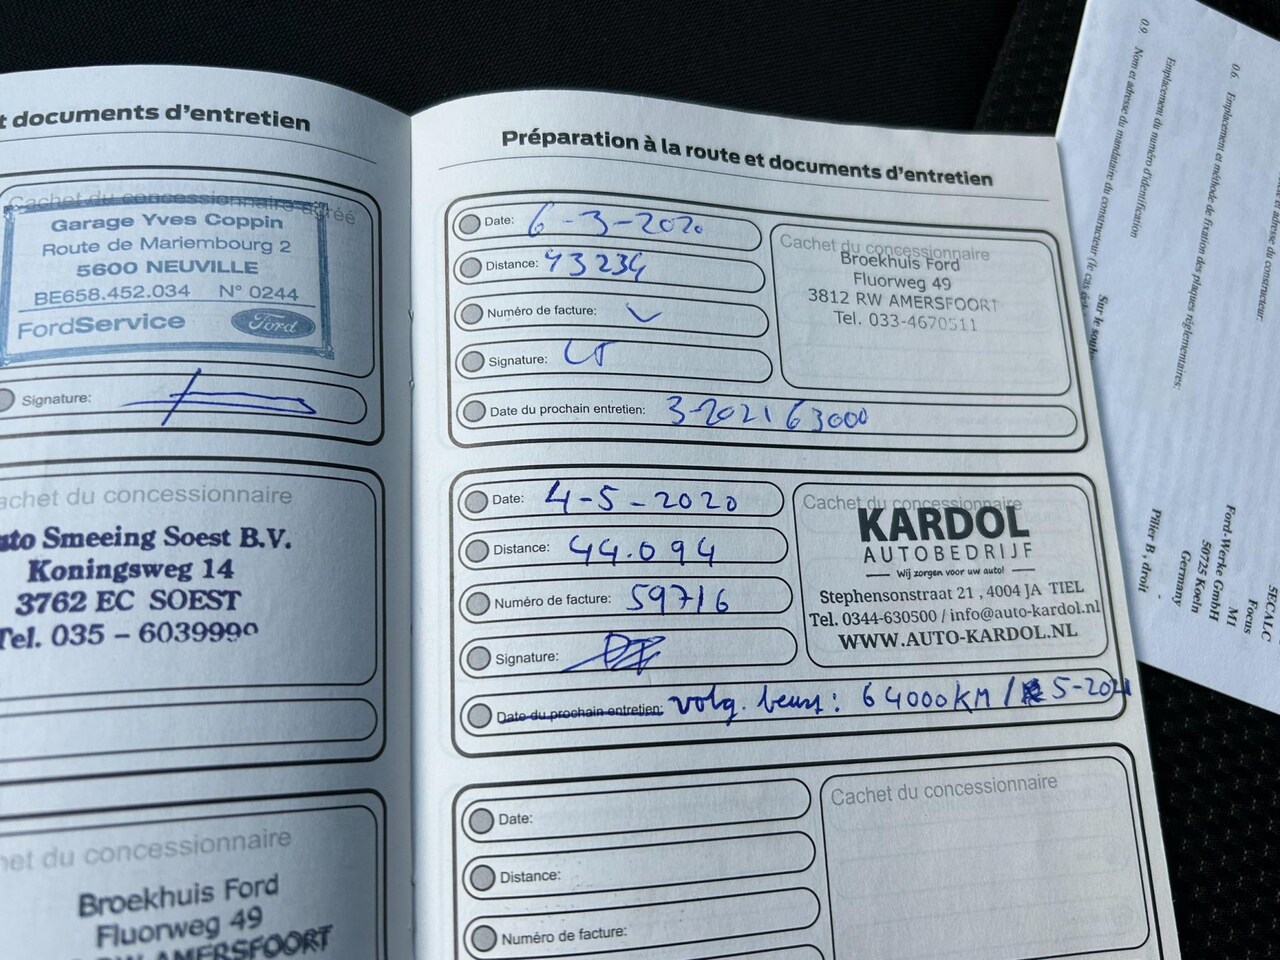 t documents d'entretien
Cachet du concessionnaire agréé
Garage Yves Coppin
Route de Mariembourg 2
5600 NEUVILLE
BE658.452.034 N° 0244
FordService Ford
Signature:
achet du concessionnaire
Smeeing Soest B.V.
Koningsweg 14
3762 EC SOEST
Tel. 035 – 6039990
het du concessionnaire
Broekhuis Ford
Fluorweg 49
RW AMERSFOORT
Préparation à la route et documents d'entretien
Date: 6-3-2020
Distance: 43234
Numéro de facture:
Signature:
Date du prochain entretien: 3-2021 63000
Cachet du concessionnaire
Broekhuis Ford
Fluorweg 49
3812 RW AMERSFOORT
Tel. 033-4670511
Date: 4-5-2020
Distance: 44.094
Numéro de facture: 59716
Signature:
Date du prochain entretien: volg. beurt: 64000 KM / 5-2021
Cachet du concessionnaire
KARDOL
AUTOBEDRIJF
Wij zorgen voor uw auto!
Stephensonstraat 21 , 4004 JA TIEL
Tel. 0344-630500 / info@auto-kardol.nl
WWW.AUTO-KARDOL.NL
Date:
Distance:
Numéro de facture:
Cachet du concessionnaire
et adresse du constructeur:
0.6. Emplacement et méthode de fixation des plaques réglementaires:
Emplacement du numéro d'identification
0.9. Nom et adresse du mandataire du constructeur (le cas
Sur le
5ECALC
Focus
M1
Ford-Werke GmbH
50725 Koeln
Germany
Pilier B, droit
-